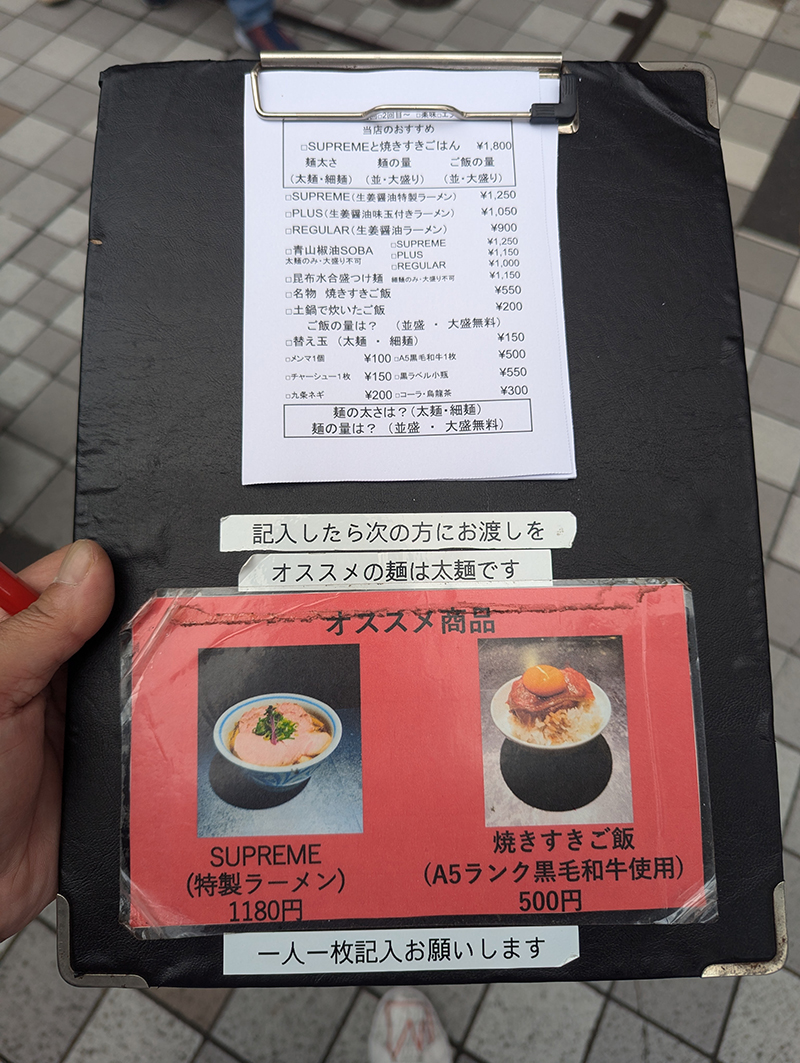 □2回目～ □薬味□エ
当店のおすすめ
□SUPREMEと焼きすきごはん ¥1,800
麺太さ 麺の量 ご飯の量
(太麺・細麺) (並・大盛り) (並・大盛り)
□SUPREME(生姜醤油特製ラーメン) ¥1,250
□PLUS(生姜醤油味玉付きラーメン) ¥1,050
□REGULAR(生姜醤油ラーメン) ¥900
□青山椒油SOBA □SUPREME ¥1,250
太麺のみ・大盛り不可 □PLUS ¥1,150
□REGULAR ¥1,000
□昆布水合盛つけ麺 細麺のみ・大盛り不可 ¥1,150
□名物 焼きすきご飯 ¥550
□土鍋で炊いたご飯 ¥200
ご飯の量は? (並盛・大盛無料)
□替え玉 (太麺・細麺) ¥150
□メンマ1個 ¥100 □A5黒毛和牛1枚 ¥500
□チャーシュー1枚 ¥150 □黒ラベル小瓶 ¥550
□九条ネギ ¥200 □コーラ・烏龍茶 ¥300
麺の太さは?(太麺・細麺)
麺の量は? (並盛・大盛無料)
記入したら次の方にお渡しを
オススメの麺は太麺です
オススメ商品
SUPREME
(特製ラーメン)
1180円
焼きすきご飯
(A5ランク黒毛和牛使用)
500円
一人一枚記入お願いします